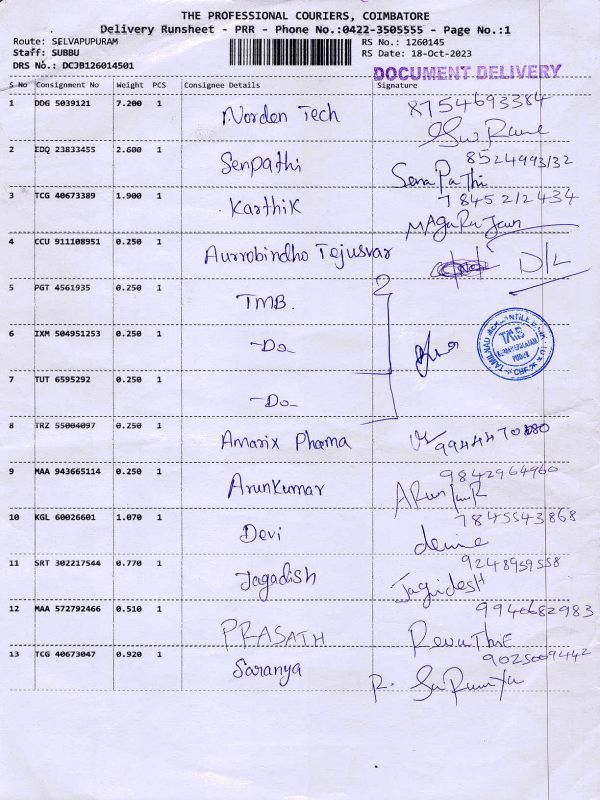 THE PROFESSIONAL COURIERS, COIMBATORE
Delivery Runsheet - PRR - Phone No.:0422-3505555 - Page No.:1
Route: SELVAPUPURAM
RS No.: 1260145
Staff: SUBBU
RS Date: 18-Oct-2023
DRS No.: DCJB126014501
DOCUMENT DELIVERY
S No Consignment No Weight PCS Consignee Details Signature
1 DDG 5039121 7.200 1 Norden Tech 8754693384
2 EDQ 23833455 2.600 1 Senpathi 8524993132
Sena Pathi
3 TCG 40673389 1.900 1 Karthik 7845212434
4 CCU 911108951 0.250 1 Aurrobindho Tejusvar D/L
5 PGT 4561935 0.250 1 TMB.
6 IXM 504951253 0.250 1 -Do-
TAMILNAD MERCANTILE BANK
7 TUT 6595292 0.250 1 -Do-
8 TRZ 55004097 0.250 1 Amarix Pharma
9 MAA 943665114 0.250 1 ArunKumar 9842964960
10 KGL 60026601 1.070 1 Devi 7845543868
11 SRT 302217544 0.770 1 Jagadish 9248959558
Jagidesh
12 MAA 572792466 0.510 1 PRASATH 9940682983
13 TCG 40673047 0.920 1 Saranya 9025009442